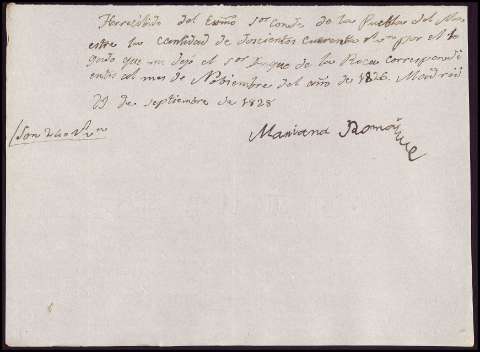 Herrecibido del Exmo Sor Conde de la Puebla del Ma
estre la cantidad de doscientos cuarenta rs von por el le
gado que me dejo el Sor Duque de la Roca correspondi
entes al mes de Nobiembre del año de 1826. Madrid
29 de septiembre de 1828
Mariana
Son 240 rs von